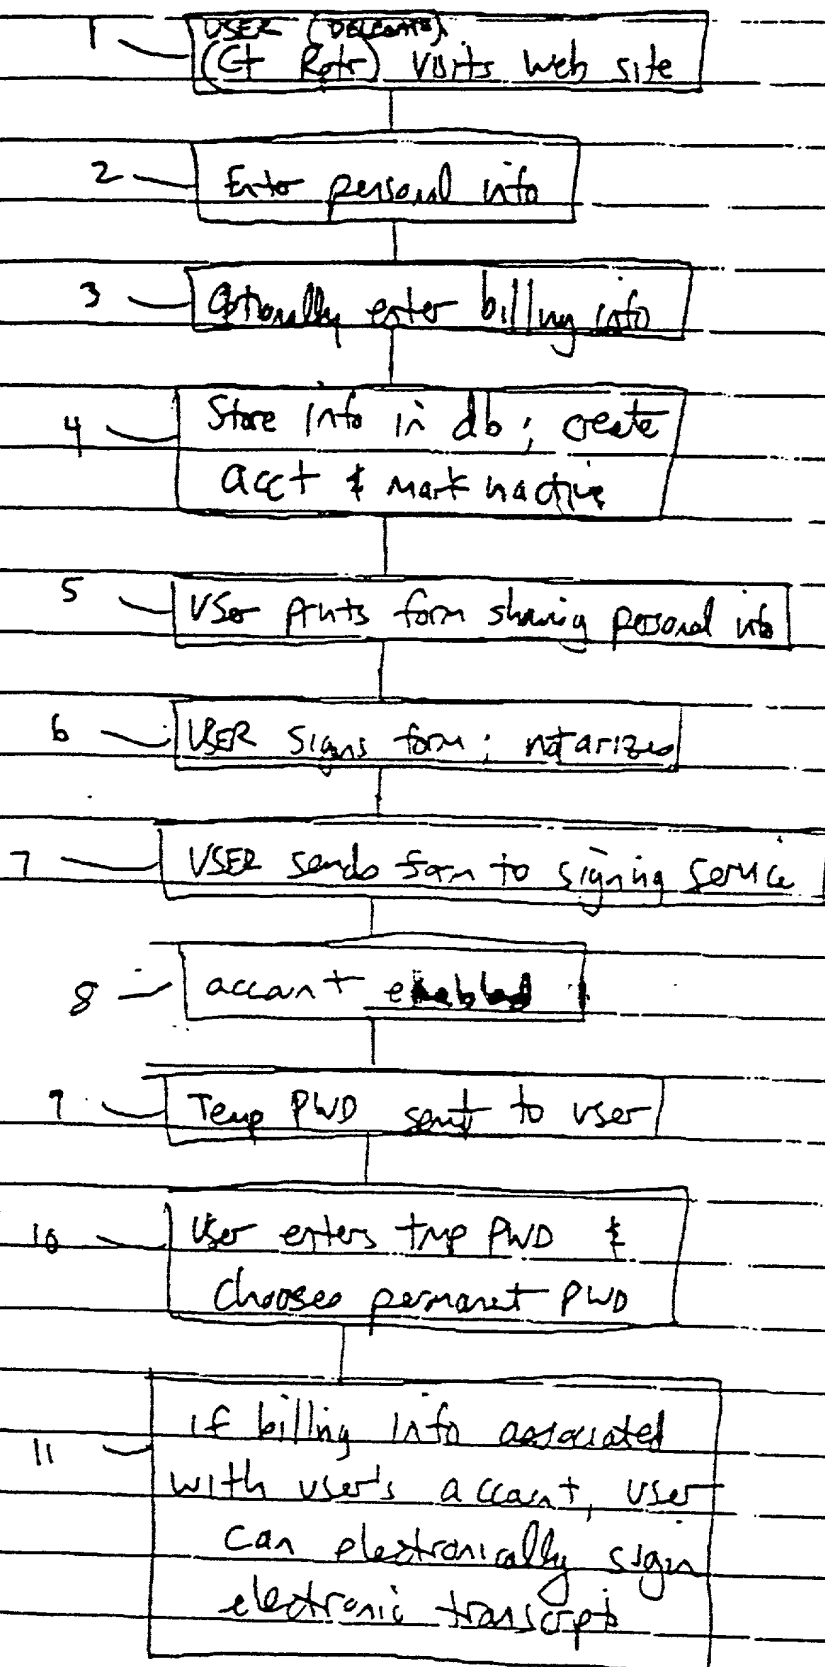 1
USER
(Ct Rptr) visits web site
2
Enter personal info
3
Optionally enter billing info
4
Store info in db; create
acct & mark inactive
5
User prints form showing personal info
6
USER signs form; notarizes
7
USER sends form to signing service
8
account enabled
9
Temp PWD sent to user
10
User enters tmp PWD &
chooses permanent PWD
11
if billing info associated
with user's account, user
can electronically sign
electronic transcripts